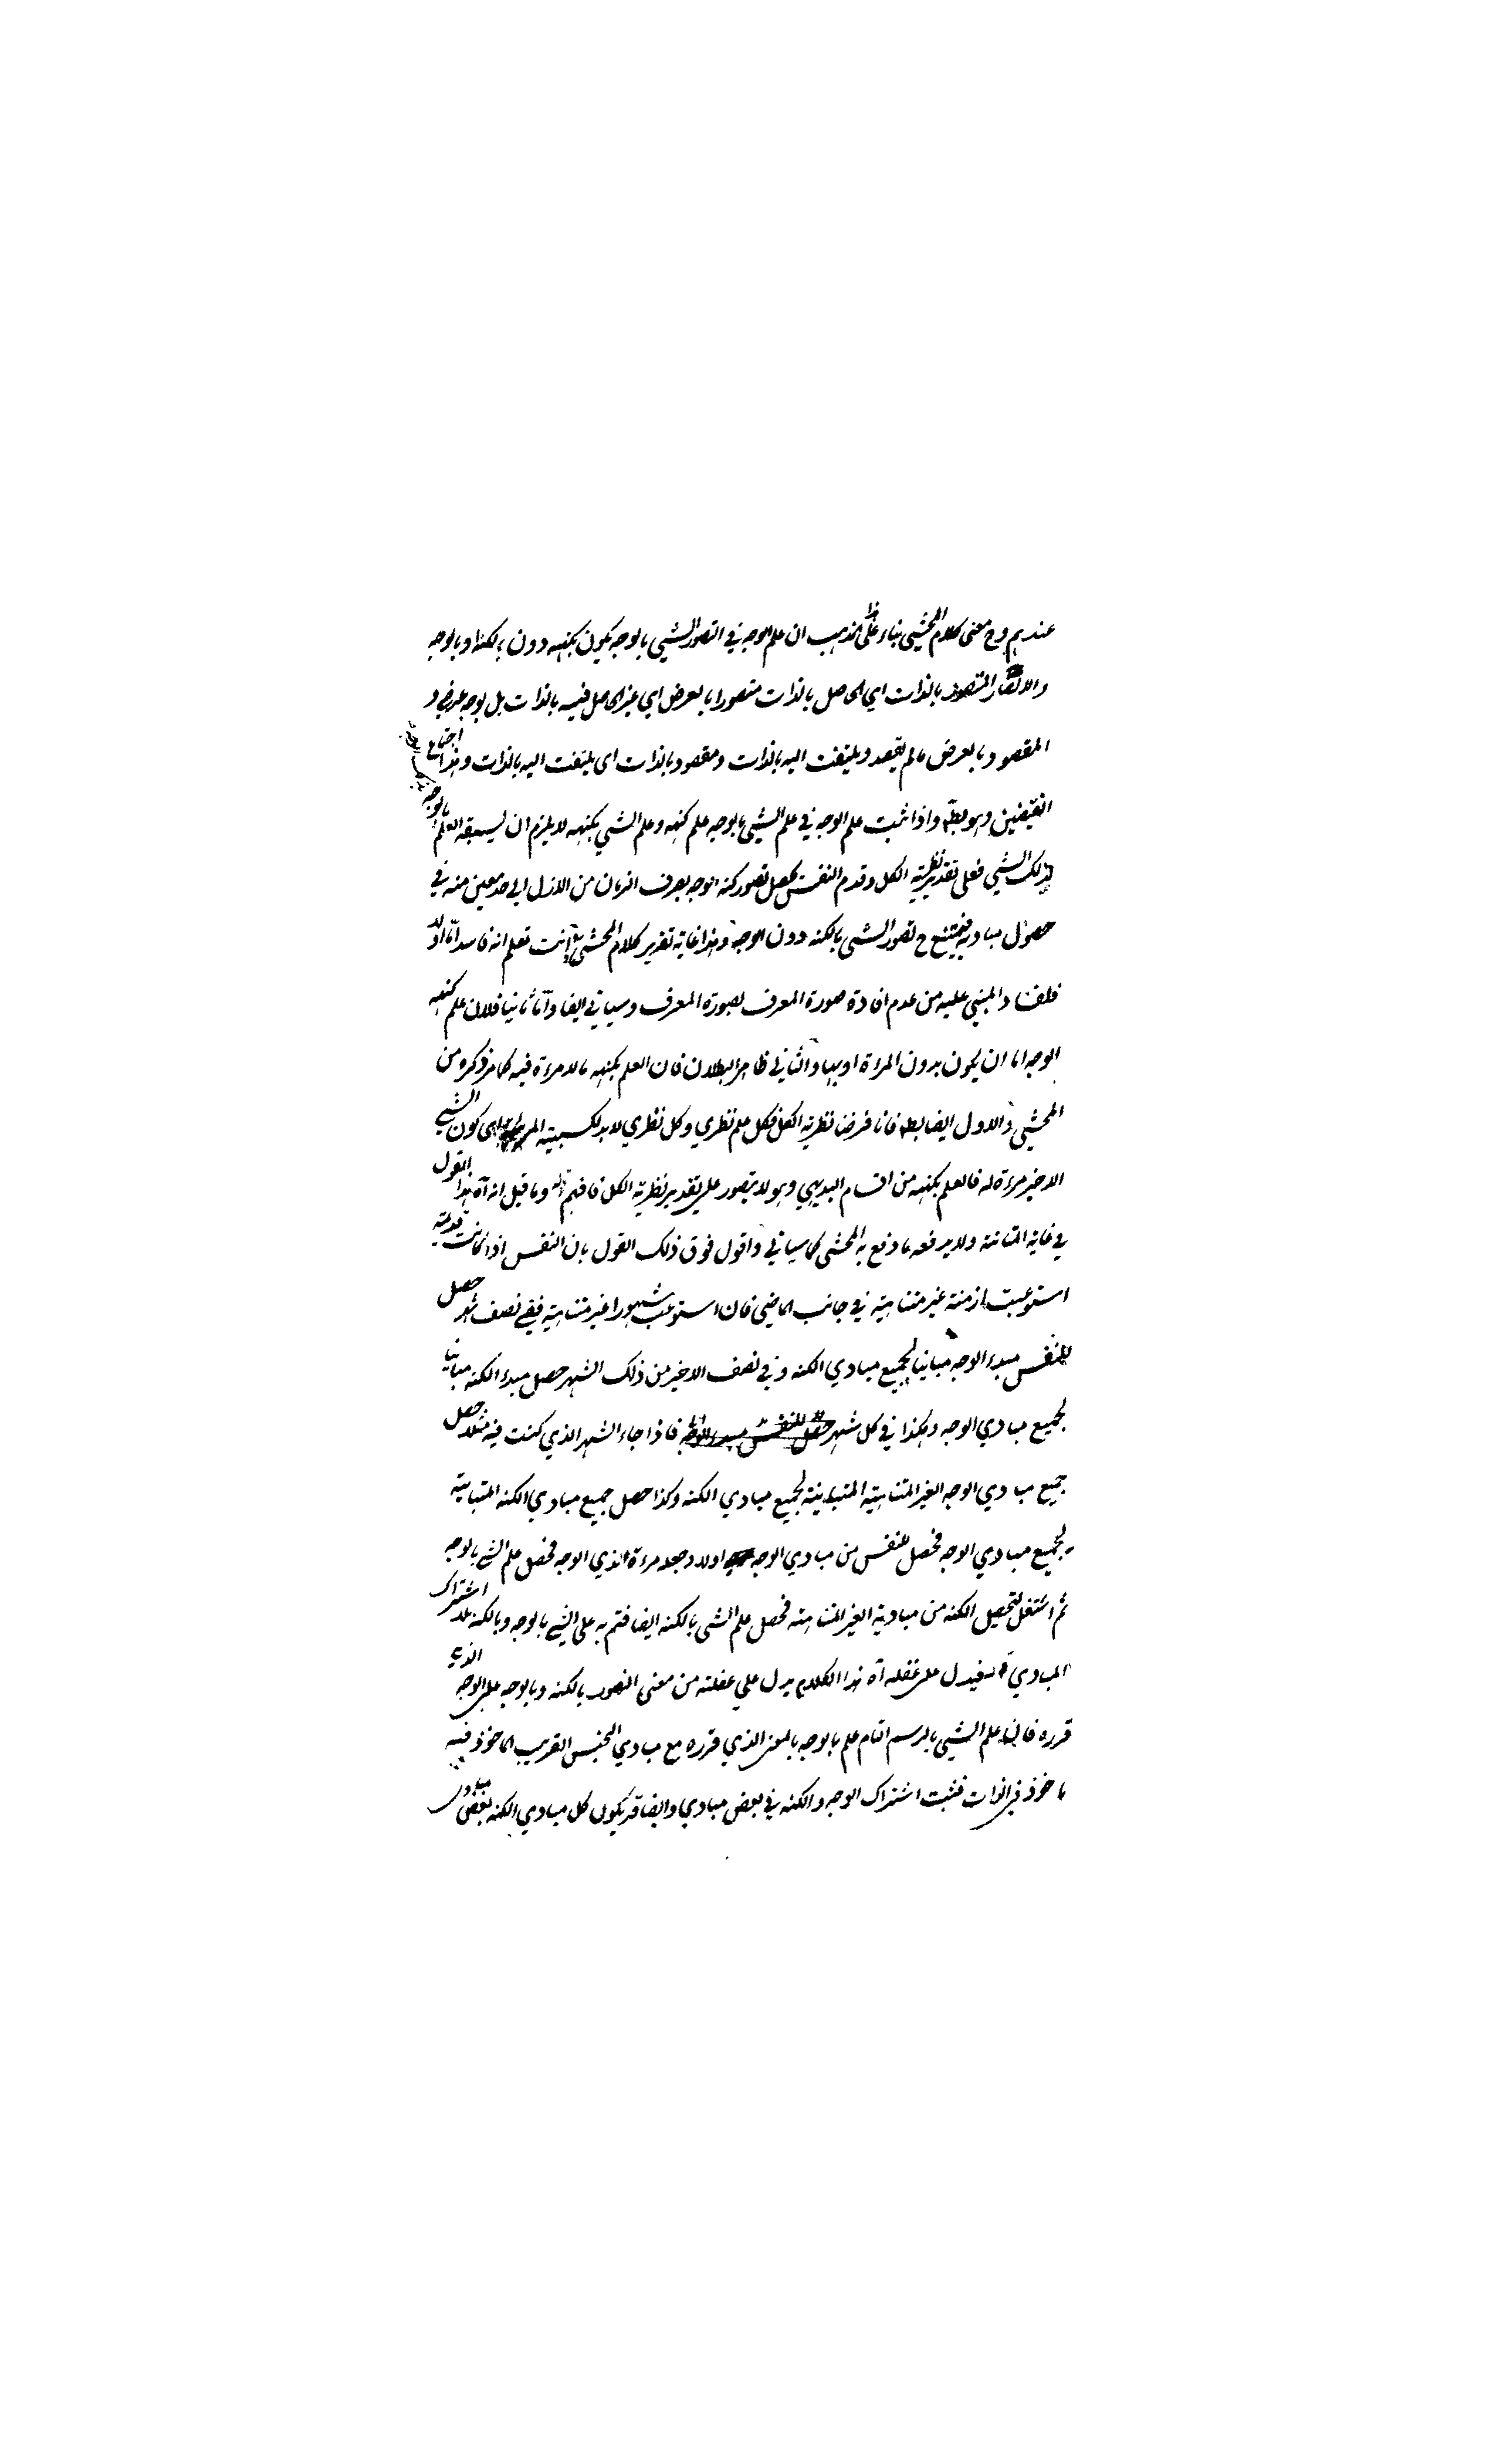 عندهم وح معنى كلام المحشي بناء على هذا المذهب ان علم الوجه في التصور الشي بالوجه يكون بكنهه دون بالكنه او بالوجه
والا لصار المتصور بالذات اي الحاصل بالذات متصورا بالعرض اي غير الحاصل فيه بالذات بل بوجه عرضي و
المقصود بالعرض ما لم يقصد ويلتفت اليه بالذات ومقصود بالذات اى يلتفت اليه بالذات وهذا اجتماع
النقيضين وهو بط واذا ثبت علم الوجه في علم الشي بالوجه علم كنهه وعلم الشي بكنهه لا يلزم ان يسبقه العلم بالوجه
لذلك الشي فعلى تقدير نظرية الكل وقدم النفس يحصل تصور كنه الوجه بصرف الزمان من الازل الى حد معين منه في
حصول مباديه فيمتنع ح تصور الشي بالكنه دون الوجه وهذا غاية تقرير كلام المحشي وانت تعلم انه فاسد اما اولا
فلفساد المبني عليه من عدم افادة صورة المعرف لصورة المعرف وسياتي ايضا واما ثانيا فلان علم كنهه
الوجه اما ان يكون بدون المرءة او بها والثاني ظاهر البطلان فان العلم بكنهه ما لا مرءة فيه كما مر ذكره من
المحشي والاول ايضا بط فانا فرضنا نظرية الكل فكل علم نظري وكل نظري لا بد لكسبيته اى كون الشي
الاخير مرءة له فالعلم بكنهه من اقسام البديهي وهو لا يتصور على تقدير نظرية الكل فافهم قوله وما قيل انه آه هذا القول
في غاية المتانة ولا يدفعه ما دفع به المحشي كما سياتي واقول فوق ذلك القول بان النفس اذا كانت قديمة
استوعبت ازمنة غير متناهية في جانب الماضي فان استوعب شهورا غير متناهية ففي نصف شهر حصل
للنفس مبدء الوجه مباينا لجميع مبادي الكنه وفي نصف الاخير من ذلك الشهر حصل مبدء الكنه مباينا
لجميع مبادي الوجه وهكذا في كل شهر فاذا جاء الشهر الذي كنت فيه مثلا حصل
جميع مبادي الوجه الغير المتناهية المتباينة لجميع مبادي الكنه وكذا حصل جميع مبادي الكنه المتباينة
لجميع مبادي الوجه فحصل للنفس من مبادي الوجه اولا وجعله مرءة لذي الوجه فحصل علم الشي بالوجه
ثم اشتغل لتحصيل الكنه من مباديه الغير المتناهية فحصل علم الشي بالكنه ايضا فتم به علم الشي بالوجه وبالكنه بلا اشتراك
المبادي قوله فيدل على غفلته آه هذا الكلام يدل على غفلته من معنى التصور بالكنه وبالوجه على الوجه الذي
قرره فان علم الشي بالرسم التام علم بالوجه بالمعنى الذي قرره مع مبادي الجنس القريب الماخوذ فيه
ماخوذ في الذات فثبت اشتراك الوجه والكنه في بعض مبادي وايضا قد يكون كل مبادي الكنه بعض مبادي